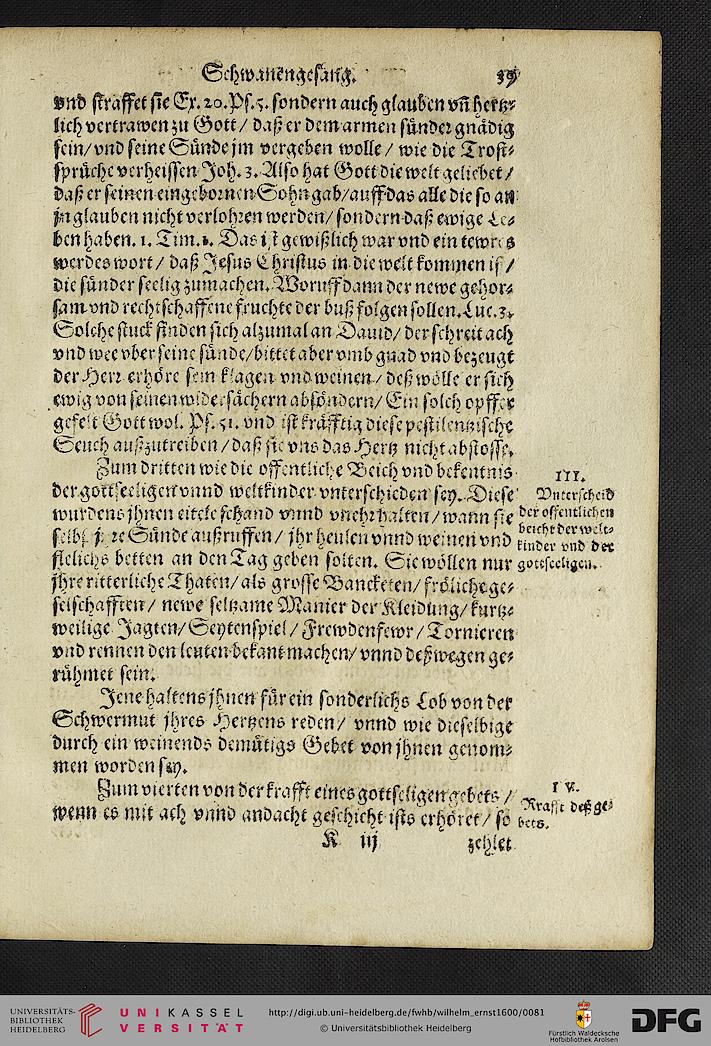 Schwanengesang. 39
vnd straffet sie Ex. 20. Ps. 5. sondern auch glauben vn̄ hertz⸗
lich vertrawen zu Gott / daß er dem armen sünder gnädig
sein / vnd seine Sünde jm vergeben wolle / wie die Trost⸗
sprüche verheissen Joh. 3. Also hat Gott die welt geliebet /
daß er seinen eingebornen Sohn gab / auff das alle die so an
jn glauben nicht verlohren werden / sondern daß ewige Le⸗
ben haben. 1. Tim. 1. Das ist gewißlich war vnd ein tewres
werdes wort / daß Jesus Christus in die welt kommen ist /
die sünder seelig zumachen. Woruff dann der newe gehor⸗
sam vnd rechtschaffene fruchte der buß folgen sollen. Luc. 3.
Solche stuck finden sich alzumal an Dauid / der schreit ach
vnd wee vber seine sünde / bittet aber vmb gnad vnd bezeugt
der Herr erhöre sein klagen vnd weinen / deß wölle er sich
ewig von seinen widersächern absöndern / Ein solch opffer
gefelt Gott wol. Ps. 51. vnd ist kräfftig diese pestilentzische
Seuch außzutreiben / daß sie vns das Hertz nicht abstosse.
Zum dritten wie die offentliche Beich vnd bekentnis
der gottseeligen vnnd weltkinder vnterschieden sey. Diese
wurdens jhnen eitele schand vnnd vnehr halten / wann sie
selbst jhre Sünde außruffen / jhr heulen vnnd weinen vnd
flelichs betten an den Tag geben solten. Sie wöllen nur
jhre ritterliche Thaten / als grosse Bancketen / fröliche ge⸗
selschafften / newe seltzame Manier der Kleidung / kurtz⸗
weilige Jagten / Seytenspiel / Frewdenfewr / Tornieren
vnd rennen den leuten bekant machen / vnnd deßwegen ge⸗
rühmet sein.
III.
Vnterscheid
der offentlichen
beicht der welt⸗
kinder vnd der
gottseeligen.
Jene haltens jhnen für ein sonderlichs Lob von der
Schwermut jhres Hertzens reden / vnnd wie dieselbige
durch ein weinends demütigs Gebet von jhnen genom⸗
men worden sey.
Zum vierten von der krafft eines gottseligen gebets /
wenn es mit ach vnnd andacht geschicht ists erhöret / so
IV.
Krafft deß ge⸗
bets.
K iij zehlet
UNIVERSITÄTS-
BIBLIOTHEK
HEIDELBERG
UNIKASSEL
VERSITÄT
http://digi.ub.uni-heidelberg.de/fwhb/wilhelm_ernst1600/0081
© Universitätsbibliothek Heidelberg
Fürstlich Waldecksche
Hofbibliothek Arolsen
DFG